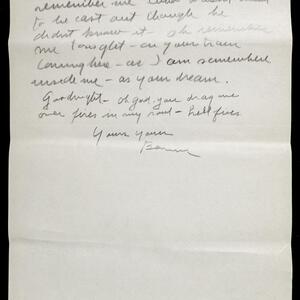 remember me
to be cast out though he
didn't know it - oh remember
me tonight - on your train
coming here - as I am somewhere
inside me - as your dream.
Goodnight - oh god, you drag me
over fires in my soul - hell fires
Yours Yours